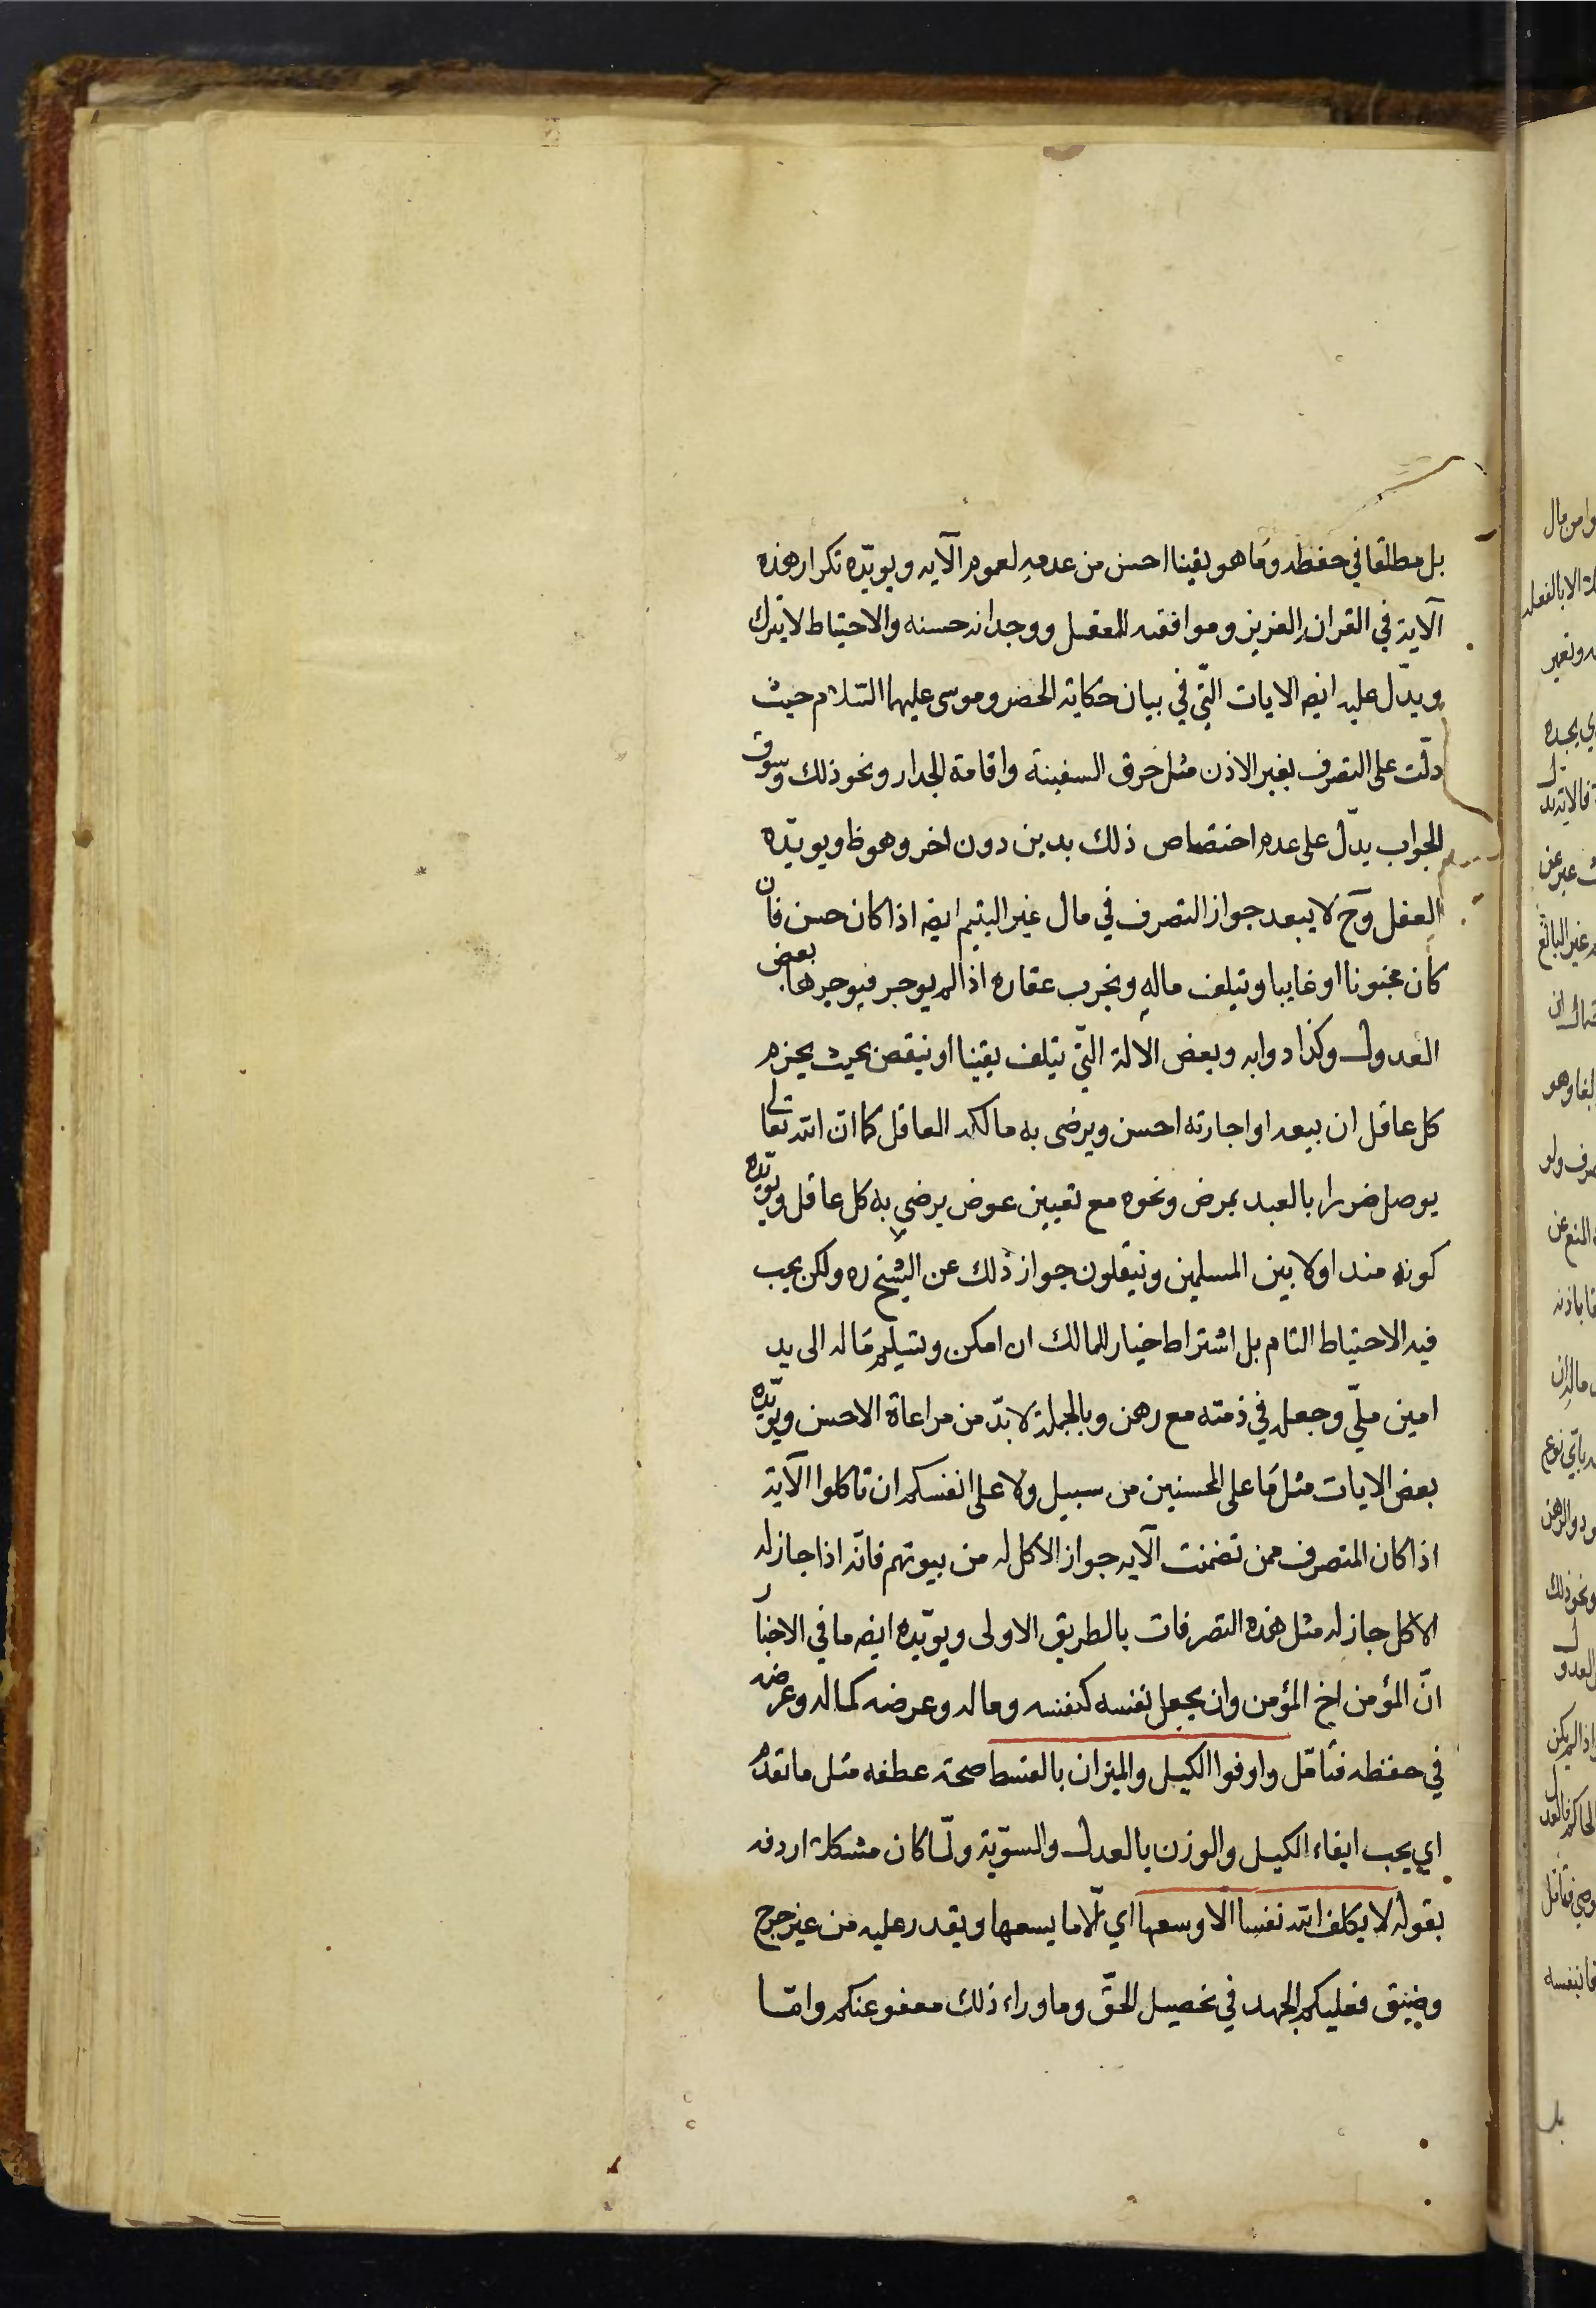 بل مطلقا في حفظه وما هو يقينا احسن من عدمه لعموم الآيه ويويّده تكرار هذه
الآية في القران العزيز وموافقته للعقل ووجدانه حسنه والاحتياط لا يترك
ويدّل عليه ايضه الايات الّتي في بيان حكاية الخضر وموسى عليهما السّلام حيث
دلّت على التصرف بغير الاذن مثل خرق السفينة واقامة الجدار ونحو ذلك وسوق
الجواب يدّل على عدم اختصاص ذلك بدين دون اخر وهو ظ ويويّده
العقل وح لا يبعد جواز التصرف في مال غير اليتيم ايضه اذا كان حسن فان
كان مجنونا او غايبا ويتلف ماله ويخرب عقاره اذا لم يوجر فيوجرها بعض
العدول وكذا دوابه وبعض الالة الّتي يتلف يقينا او ينقص بحيث يجزم
كل عاقل ان بيعه او اجارته احسن ويرضى به مالكه العاقل كما ان الله تعالى
يوصل ضررا بالعبد بمرض ونحوه مع تعيين عوض يرضى به كل عاقل ويويّده
كونه متداولا بين المسلمين وينقلون جواز ذلك عن الشيخ ره ولكن يجب
فيه الاحتياط التام بل اشتراط خيار للمالك ان امكن وتسليم ماله الى يد
امين ملّي وجعله في ذمته مع رهن وبالجملة لا بدّ من مراعاة الاحسن ويويّده
بعض الايات مثل ما على المحسنين من سبيل ولا على انفسكم ان تاكلوا الآية
اذا كان المتصرف ممن تضمنت الآيه جواز الاكل له من بيوتهم فانّه اذا جاز له
الاكل جاز له مثل هذه التصرفات بالطريق الاولى ويويّده ايضه ما في الاخبار
انّ المؤمن اخ المؤمن وان يجعل نفسه كنفسه وماله وعرضه كماله وعرضه
في حفظه فتامّل واوفوا الكيل والميزان بالقسط صحة عطفه مثل ما تقدم
اي يجب ايفاء الكيل والوزن بالعدل والسوّية ولّما كان مشكلة اردفه
بقوله لا يكلف الله نفسا الّا وسعها اي الّا ما يسعها ويقدر عليه من غير حرج
وضيق فعليكم الجهد في تحصيل الحقّ وما وراء ذلك معفو عنكم وامّا